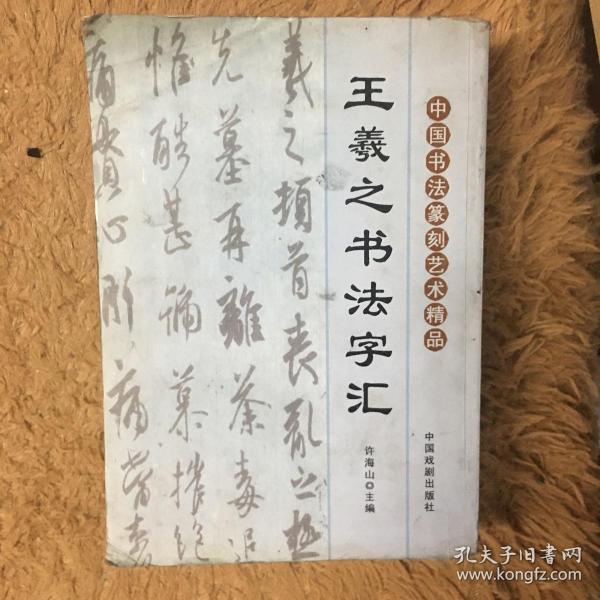 中国书法篆刻艺术精品
中国戏剧出版社
王羲之书法字汇
许海山 主编
羲之頓首喪亂之極
先墓再離荼毒追
惟酷甚號慕摧絕
痛貫心肝痛當奈
孔夫子旧书网
www.kongfz.com